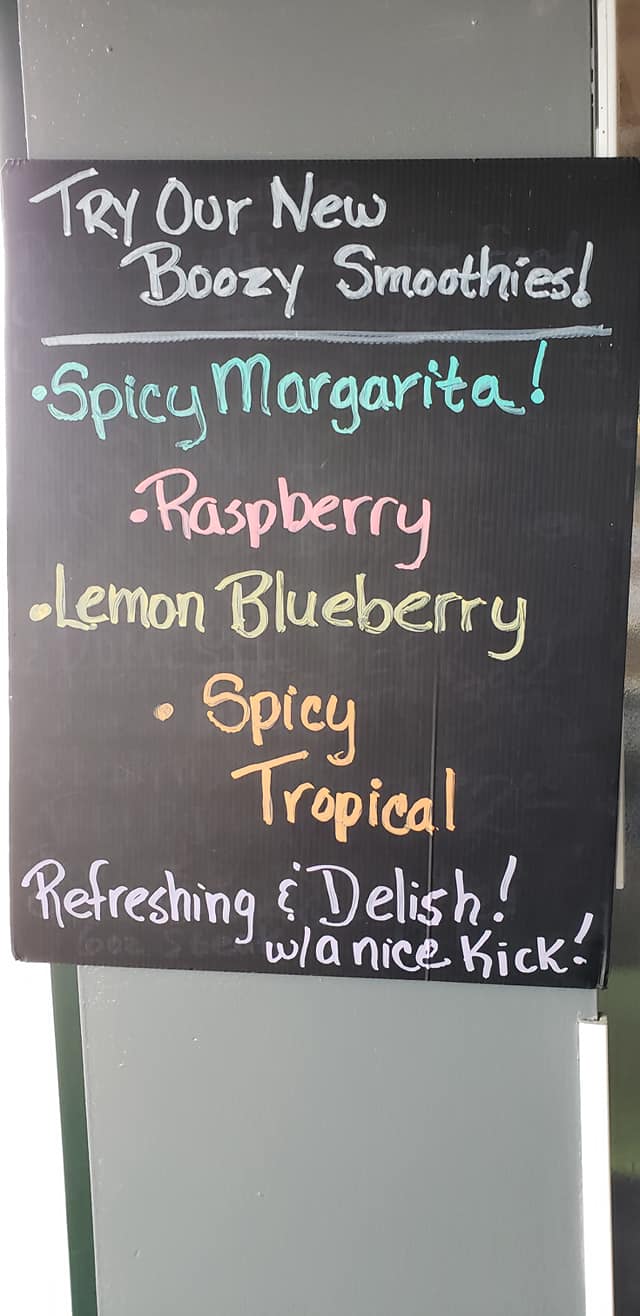 TRY Our New
Boozy Smoothies!
• Spicy Margarita!
• Raspberry
• Lemon Blueberry
• Spicy
Tropical
Refreshing & Delish!
w/a nice Kick!